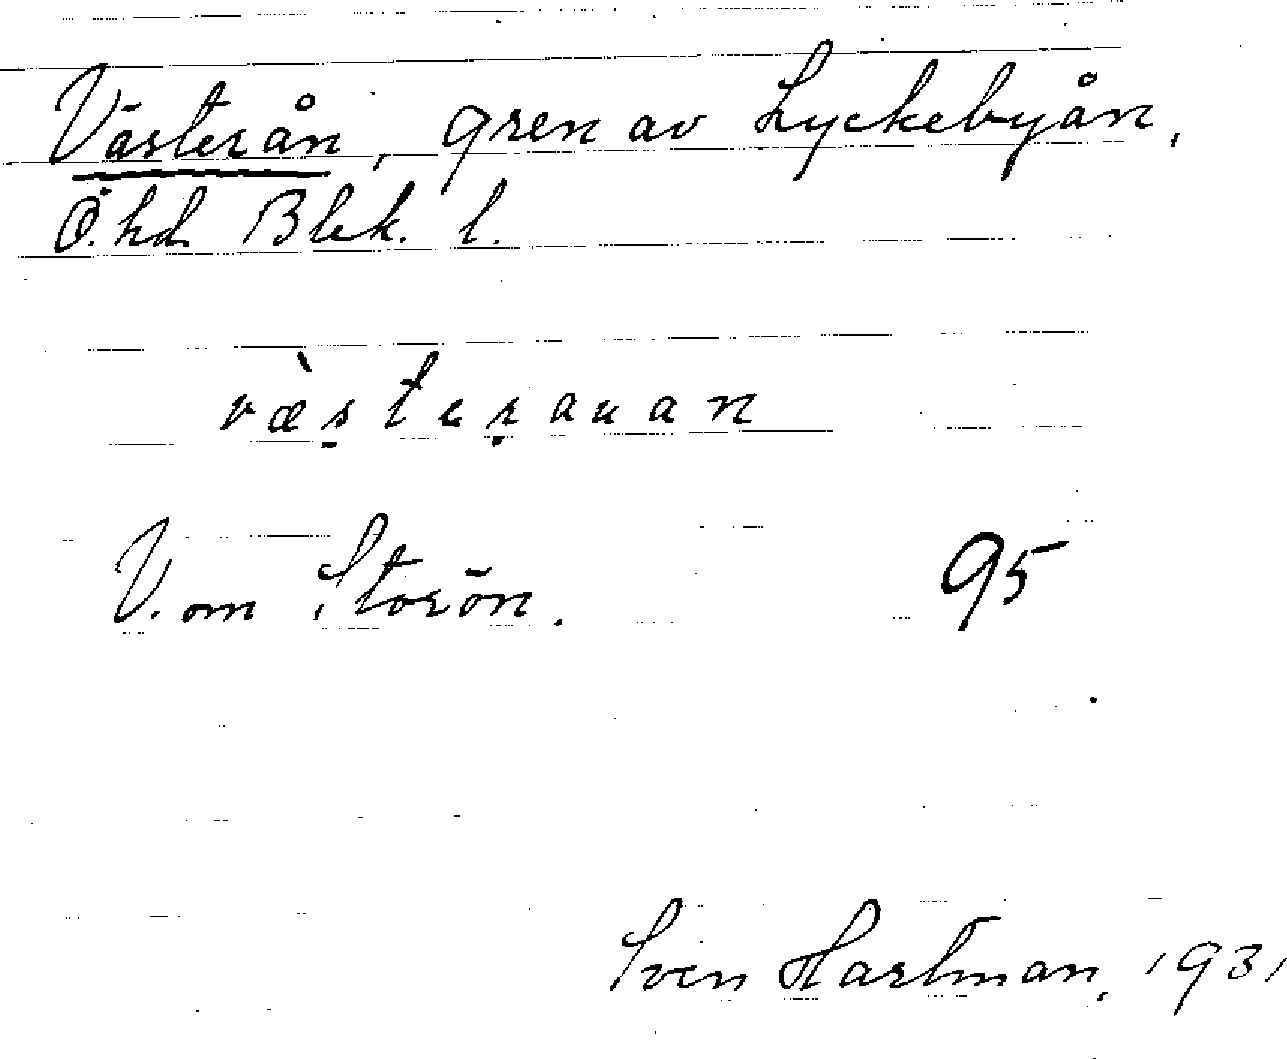 Västerån, gren av Lyckebyån,
Ö. hd Blek. l.
væ̀s̱teṛauan
V. om Storön. 95
Sven Hartman, 1931